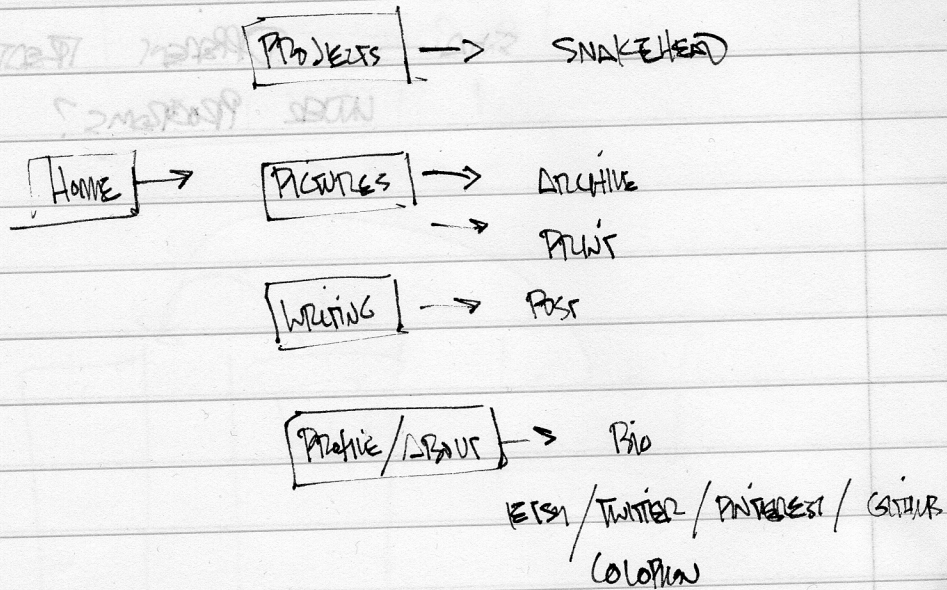 PROJECTS → SNAKEHEAD
HOME → PICTURES → ARCHIVE
→ PRINT
WRITING → POST
PROFILE/ABOUT → BIO
ETSY / TWITTER / PINTEREST / GITHUB
COLOPHON